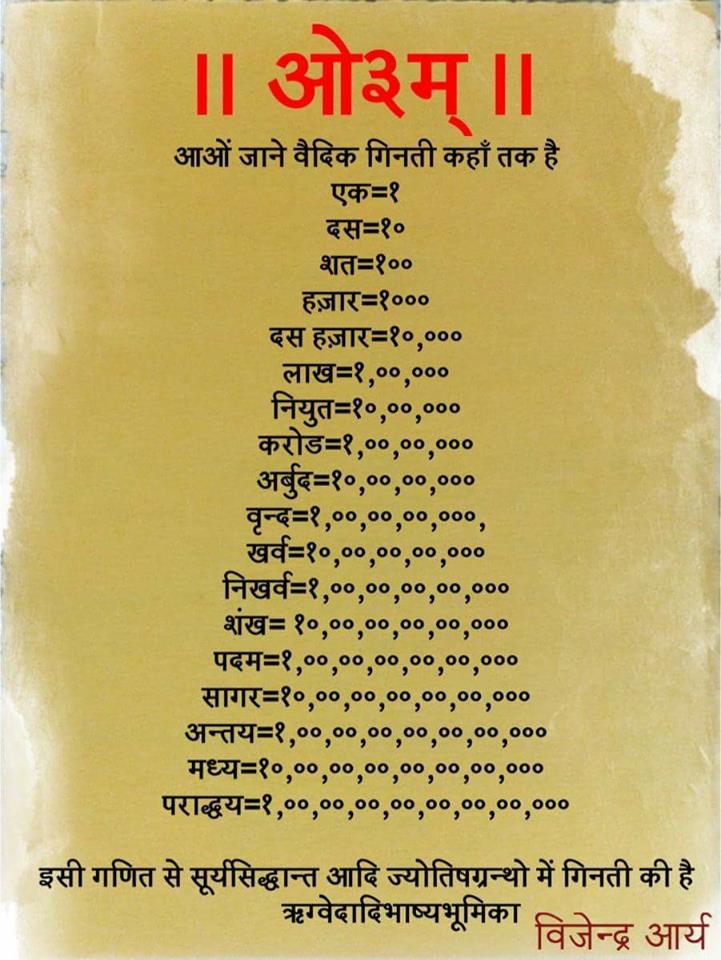 ॥ ओ३म् ॥
आओं जाने वैदिक गिनती कहाँ तक है
एक=१
दस=१०
शत=१००
हज़ार=१०००
दस हज़ार=१०,०००
लाख=१,००,०००
नियुत=१०,००,०००
करोड=१,००,००,०००
अर्बुद=१०,००,००,०००
वृन्द=१,००,००,००,०००,
खर्व=१०,००,००,००,०००
निखर्व=१,००,००,००,००,०००
शंख= १०,००,००,००,००,०००
पदम=१,००,००,००,००,००,०००
सागर=१०,००,००,००,००,००,०००
अन्तय=१,००,००,००,००,००,००,०००
मध्य=१०,००,००,००,००,००,००,०००
पराद्धय=१,००,००,००,००,००,००,००,०००
इसी गणित से सूर्यसिद्धान्त आदि ज्योतिषग्रन्थो में गिनती की है
ऋग्वेदादिभाष्यभूमिका
विजेन्द्र आर्य